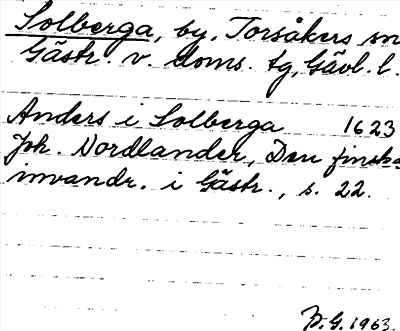 Solberga, by, Torsåkers sn
Gästr. v. doms. tg, Gävl. l.
Anders i Solberga 1623
Joh. Nordlander, Den finska
invandr. i Gästr., s. 22.
B.G. 1963.